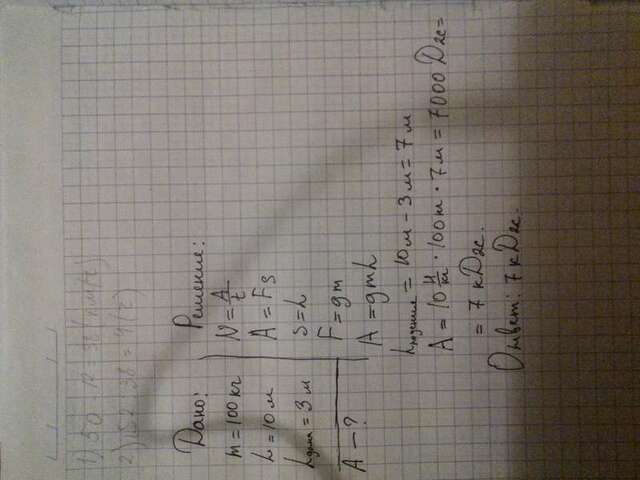 Дано:
m = 100 кг
h = 10 м
h дна = 3 м
A — ?
Решение:
N = A/t
A = Fs
s = h
F = gm
A = gmh
h = 10 м - 3 м = 7 м
A = 10 Н/кг · 100 кг · 7 м = 7000 Дж =
= 7 кДж.
Ответ: 7 кДж.